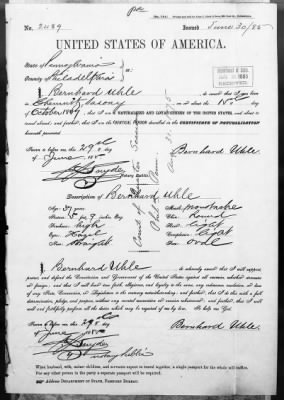 No. 2489 Issued June 30/85
UNITED STATES OF AMERICA.
State of Pennsylvania
County of Philadelphia } ss:
I Bernhard Uhle, do swear that I was born
in Chemnitz Saxony on or about the day of
October 1847; that I am a NATURALIZED AND LOYAL CITIZEN OF THE UNITED STATES, and about to
travel abroad; and further, that I am the IDENTICAL PERSON described in the CERTIFICATE OF NATURALIZATION
herewith presented.
Sworn to before me this 29th day
of June 1885
Bernhard Uhle.
Snyder
Description of Bernhard Uhle
Age: 37 years Mouth: moustache
Stature: 5 ft. 9 inches, Eng. Chin: Round
Forehead: high Hair: Light
Eyes: Hazel Complexion: Light
Nose: Straight Face: oval
I Bernhard Uhle, do solemnly swear that I will support,
protect, and defend the Constitution and Government of the United States against all enemies, whether domestic
or foreign; and that I will bear true faith, allegiance, and loyalty to the same, any ordinance, resolution, or law
of any State, Convention, or Legislature to the contrary notwithstanding; and further, that I do this with a full
determination, pledge, and purpose, without any mental reservation or evasion whatsoever; and further, that I will
well and faithfully perform all the duties which may be required of me by law. So help me God.
Sworn to before me this 29th day
of June 1885
Bernhard Uhle.
Snyder
Notary Public
When husband, wife, minor children, and servants expect to travel together, a single passport for the whole will suffice.
For any other person in the party a separate passport will be required.
Address DEPARTMENT OF STATE, PASSPORT BUREAU.